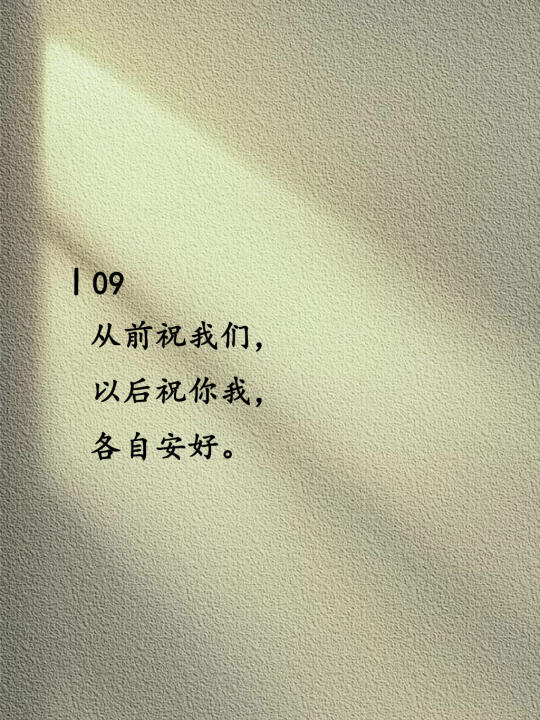 | 09
从前祝我们，
以后祝你我，
各自安好。